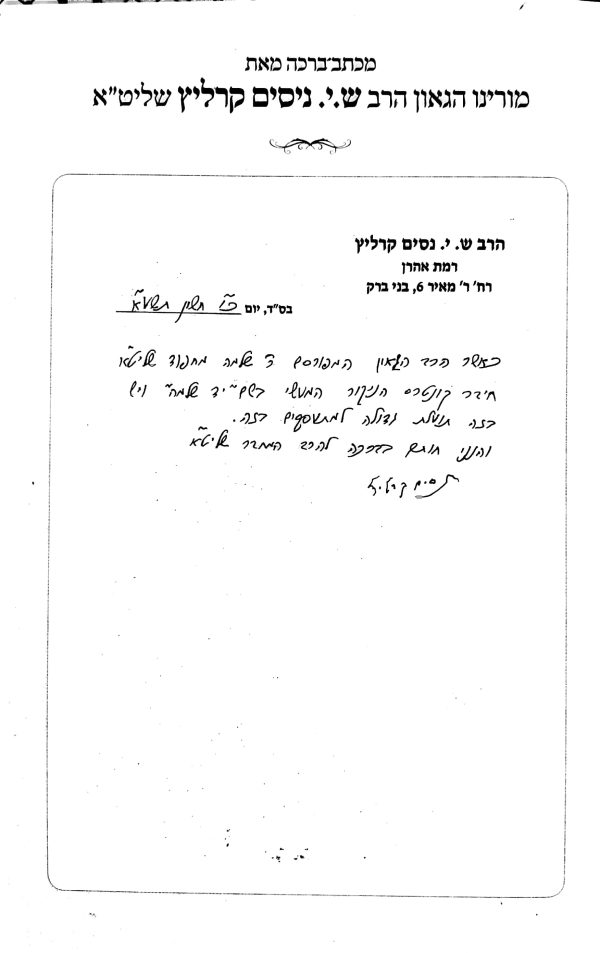 מכתב־ברכה מאת
מורינו הגאון הרב ש.י. ניסים קרליץ שליט"א
הרב ש. י. נסים קרליץ
רמת אהרן
רח' ר' מאיר 6, בני ברק
בס"ד, יום כ"ו חשון תשע"א
כאשר הרב הגאון המפורסם ר' שלמה מחפוד שליט"א
חיבר קונטרס הניקור המעשי בשם "יד שלמה" ויש
בזה תועלת גדולה למתעסקים בזה.
והנני חותם בברכה להרב המחבר שליט"א
נסים קרליץ